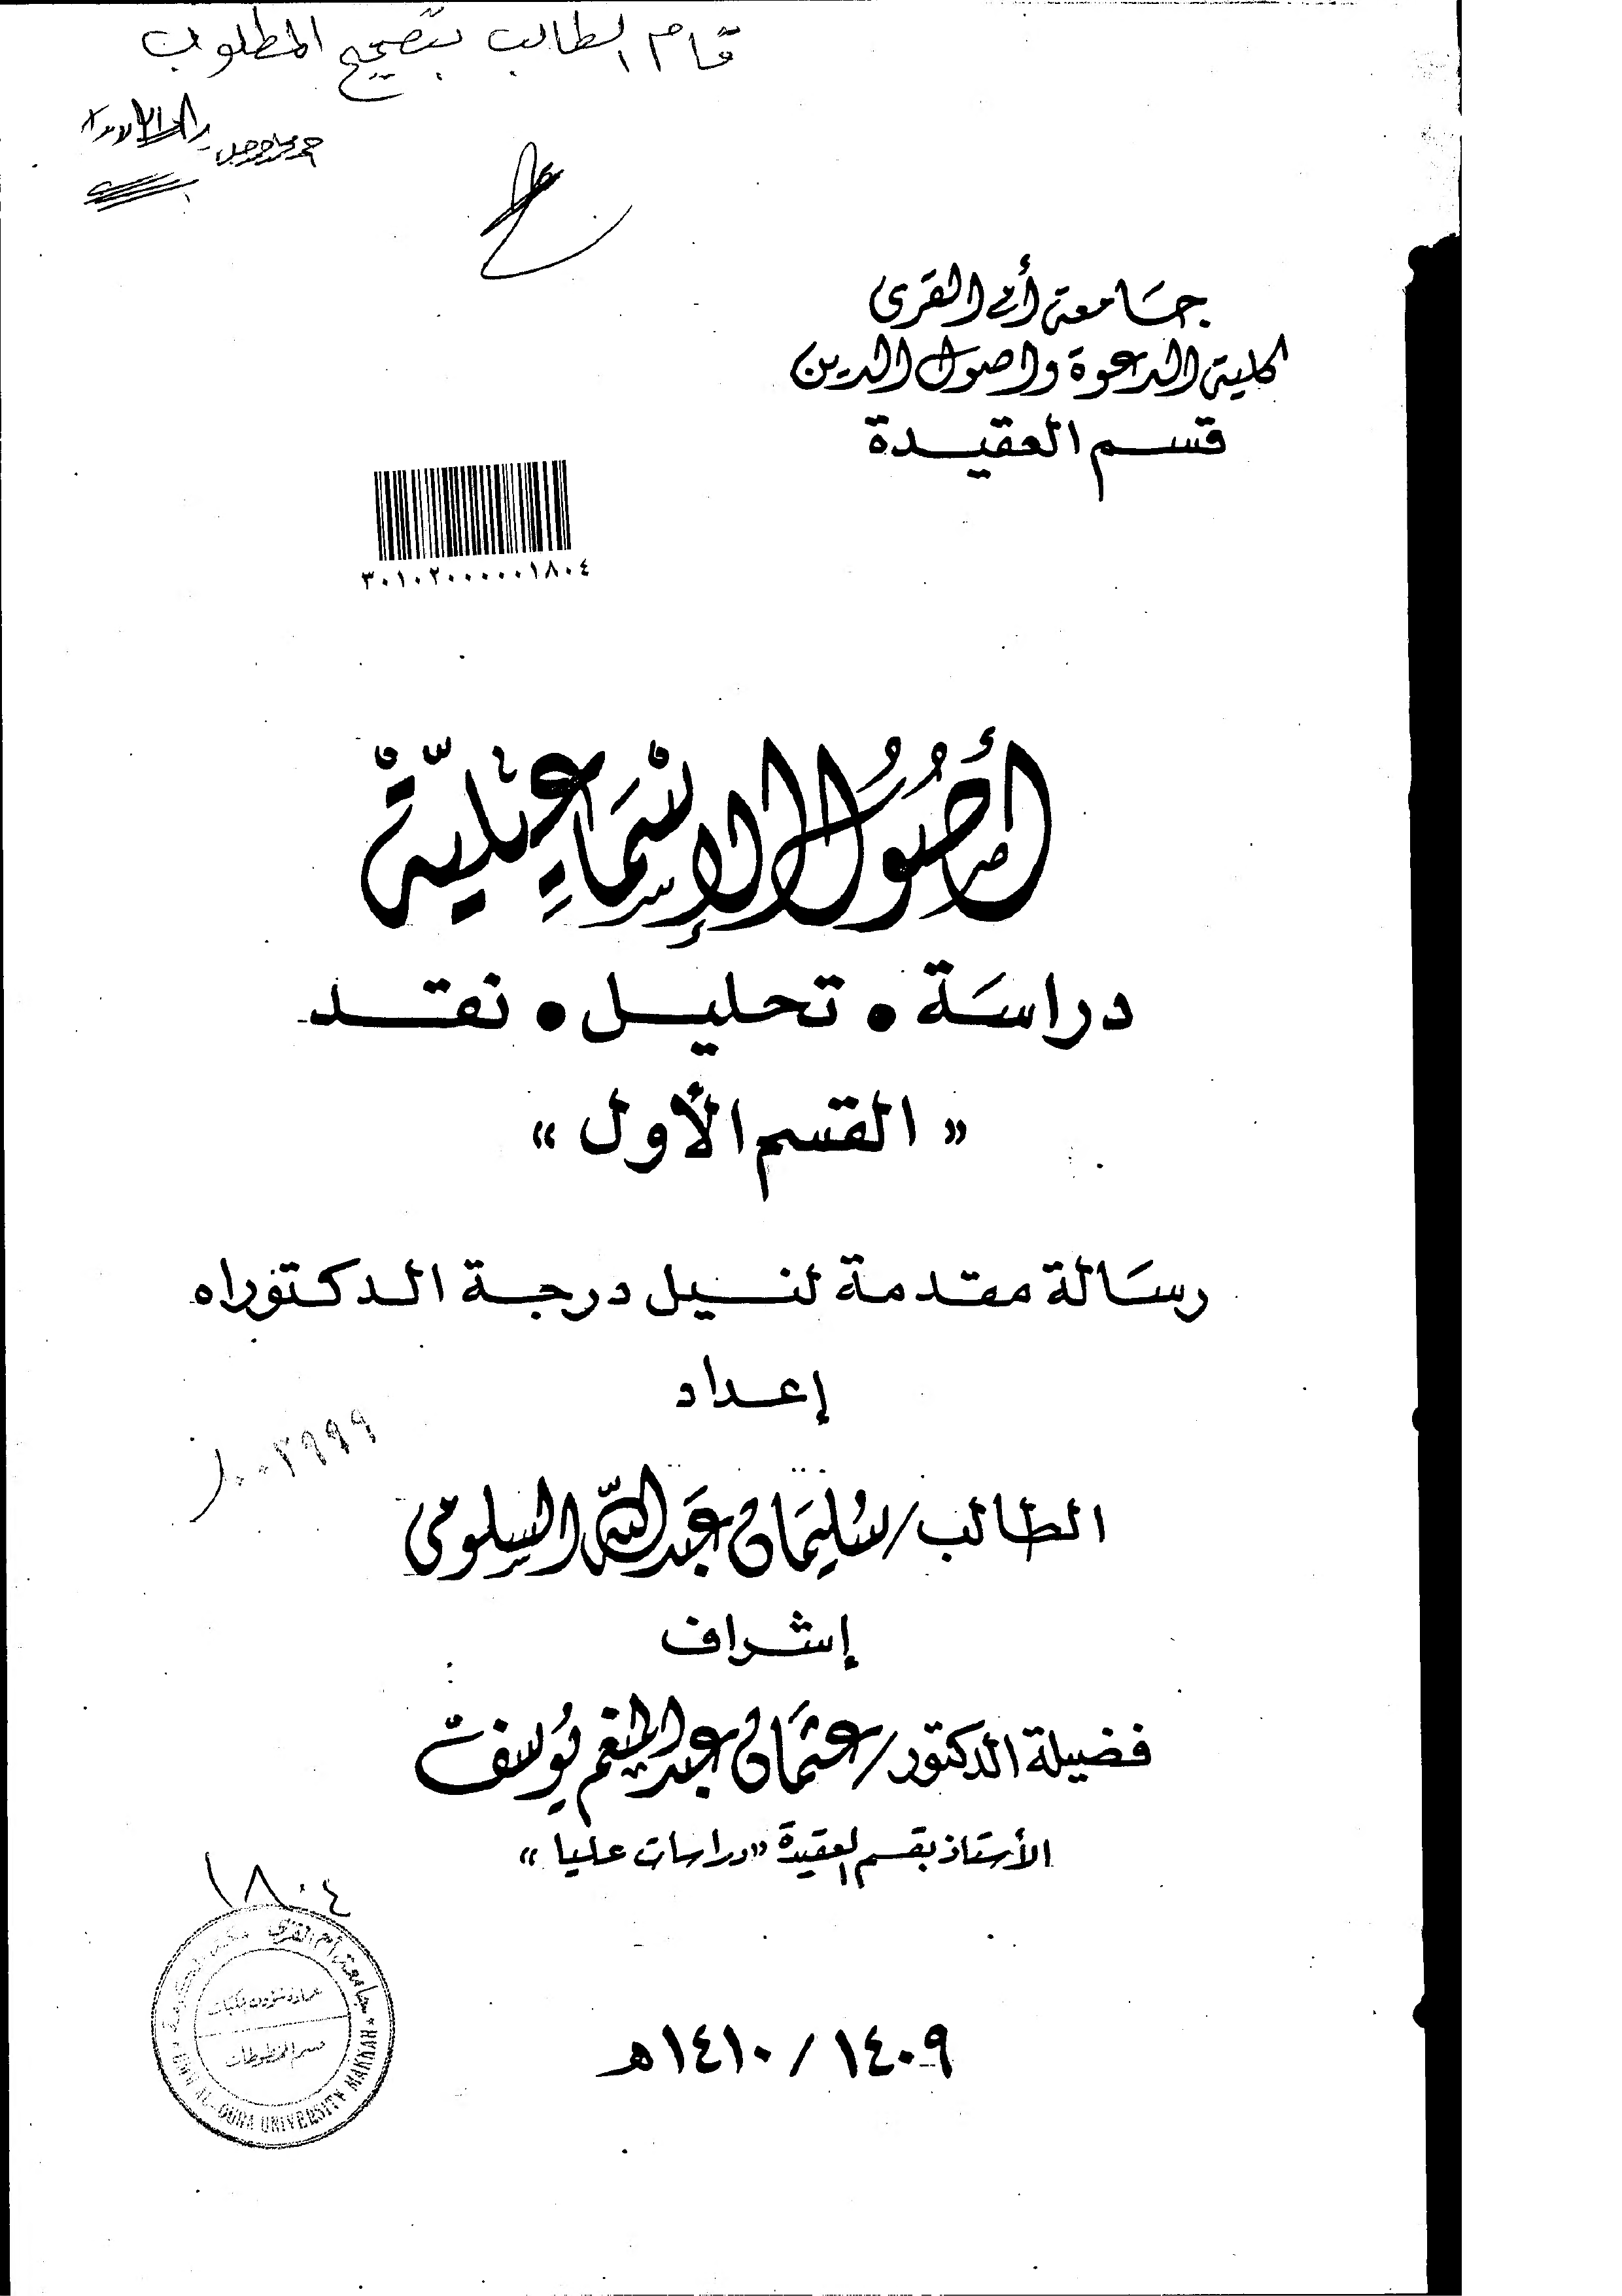 قام الطالب بتصحيح المطلوب
جامعة أم القرى
كلية الدعوة واصول الدين
قسم العقيدة
٣٠١٠٢٠٠٠٠٠٠١٨٠٤
أُصُولُ الإِسْمَاعِيْلِيَّةْ
دراسَة • تحليل • نقد
« القسم الأول »
رسَالة مقدمة لنيل درجة الدكتوراه
إعداد
الطالب / سُليمَان عَبدالله السلومي
إشراف
فضيلة الدكتور / عثمَان عبدالمنعم يُوسف
الأستاذ بقسم العقيدة «دراسات عليا»
١٨٠٤
جامعة أم القرى
عمادة شؤون المكتبات
قسم المخطوطات
UMM AL-QURA UNIVERSITY MAKKAH
١٤٠٩ / ١٤١٠هـ